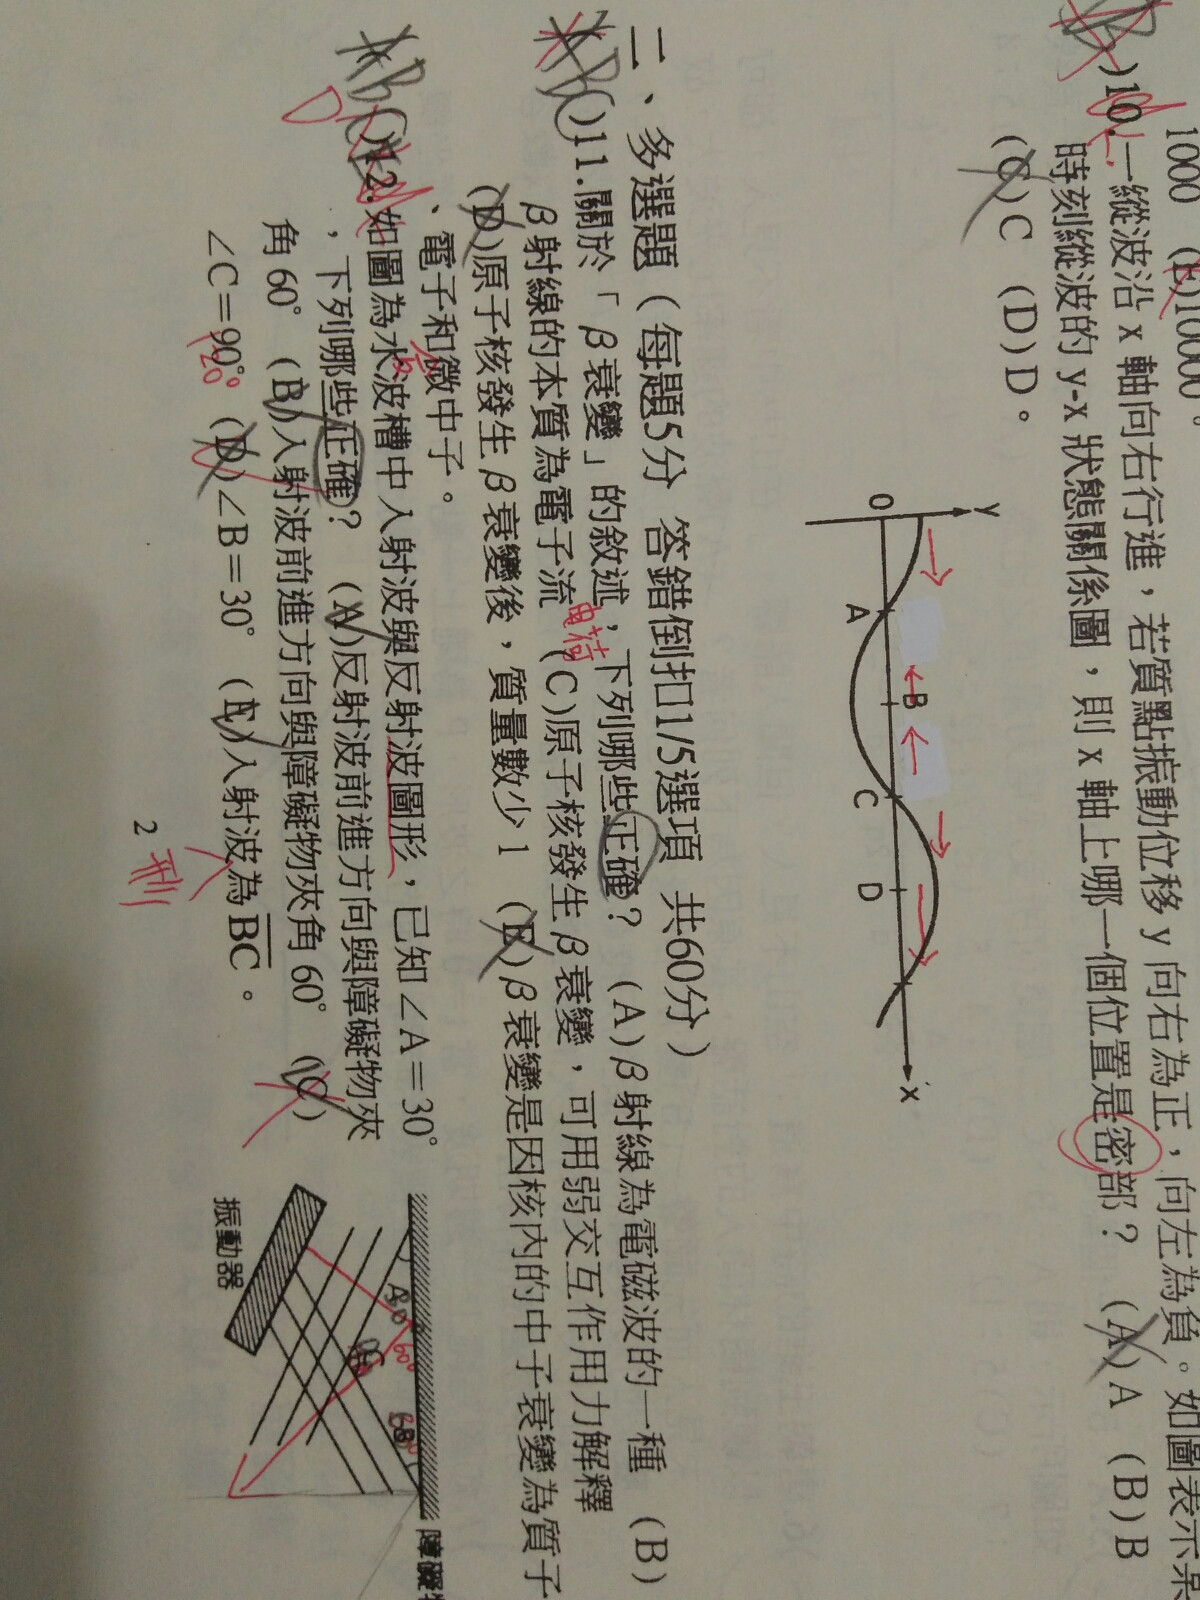 1000 (E)10000。
)10.一縱波沿 x 軸向右行進，若質點振動位移 y 向右為正，向左為負。如圖表示某
時刻縱波的 y-x 狀態關係圖，則 x 軸上哪一個位置是密部？ (A)A (B)B
(C)C (D)D。
y
O
A
B
C
D
x
二、多選題（每題5分 答錯倒扣1/5選項 共60分）
( )11.關於「β衰變」的敘述，下列哪些正確？ (A)β射線為電磁波的一種 (B)
電荷
β射線的本質為電子流 (C)原子核發生β衰變，可用弱交互作用力解釋
(D)原子核發生β衰變後，質量數少1 (E)β衰變是因核內的中子衰變為質子
、電子和微中子。
D
( )12.如圖為水波槽中入射波與反射波圖形，已知∠A＝30°
，下列哪些正確？ (A)反射波前進方向與障礙物夾
角60° (B)入射波前進方向與障礙物夾角60° (C)
∠C＝90° (D)∠B＝30° (E)入射波為BC。
120°
A
30
60°
C
B
振動器
障礙物
2